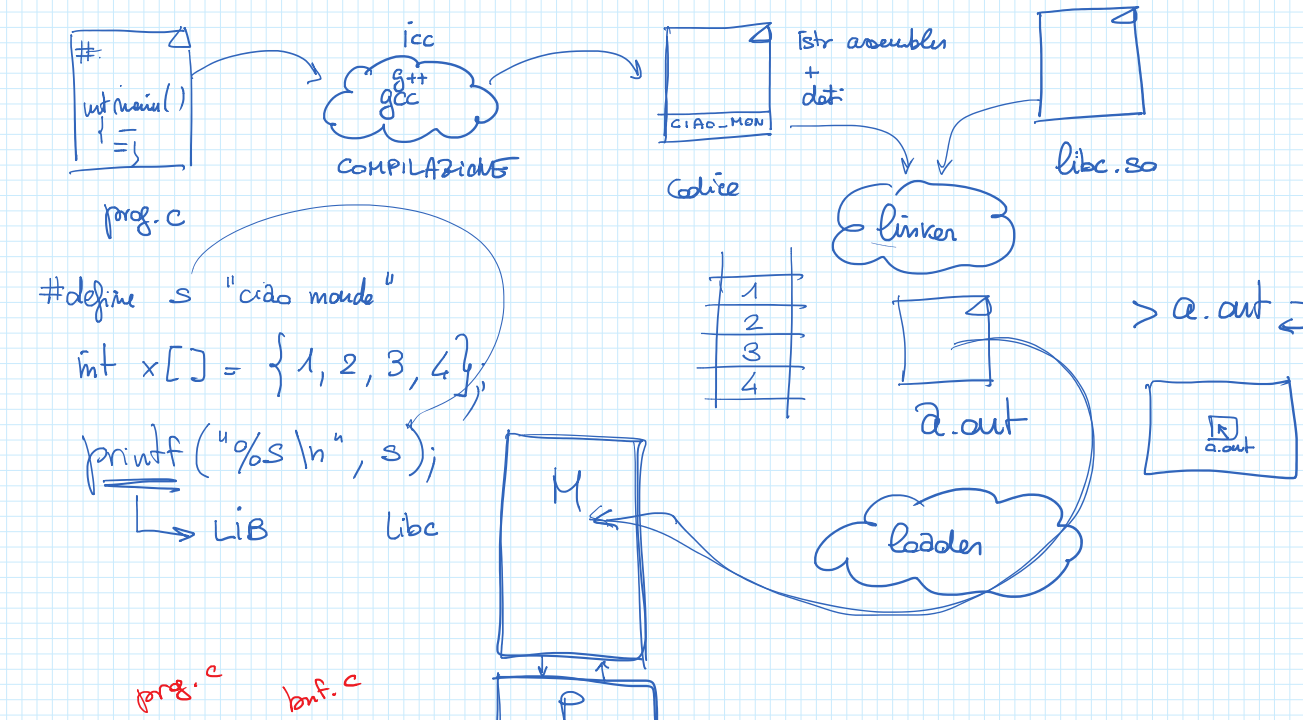 #
int main()
{ =
= }
prog.c
icc
g++
gcc
COMPILAZIONE
CIAO_MON
Codice
Istr assembler
+
dati
libc.so
linker
#define s "ciao mondo"
int x[] = {1, 2, 3, 4};
printf("%s\n", s);
LIB
libc
1
2
3
4
a.out
> a.out
a.out
loader
M
P
prog.c
buf.c